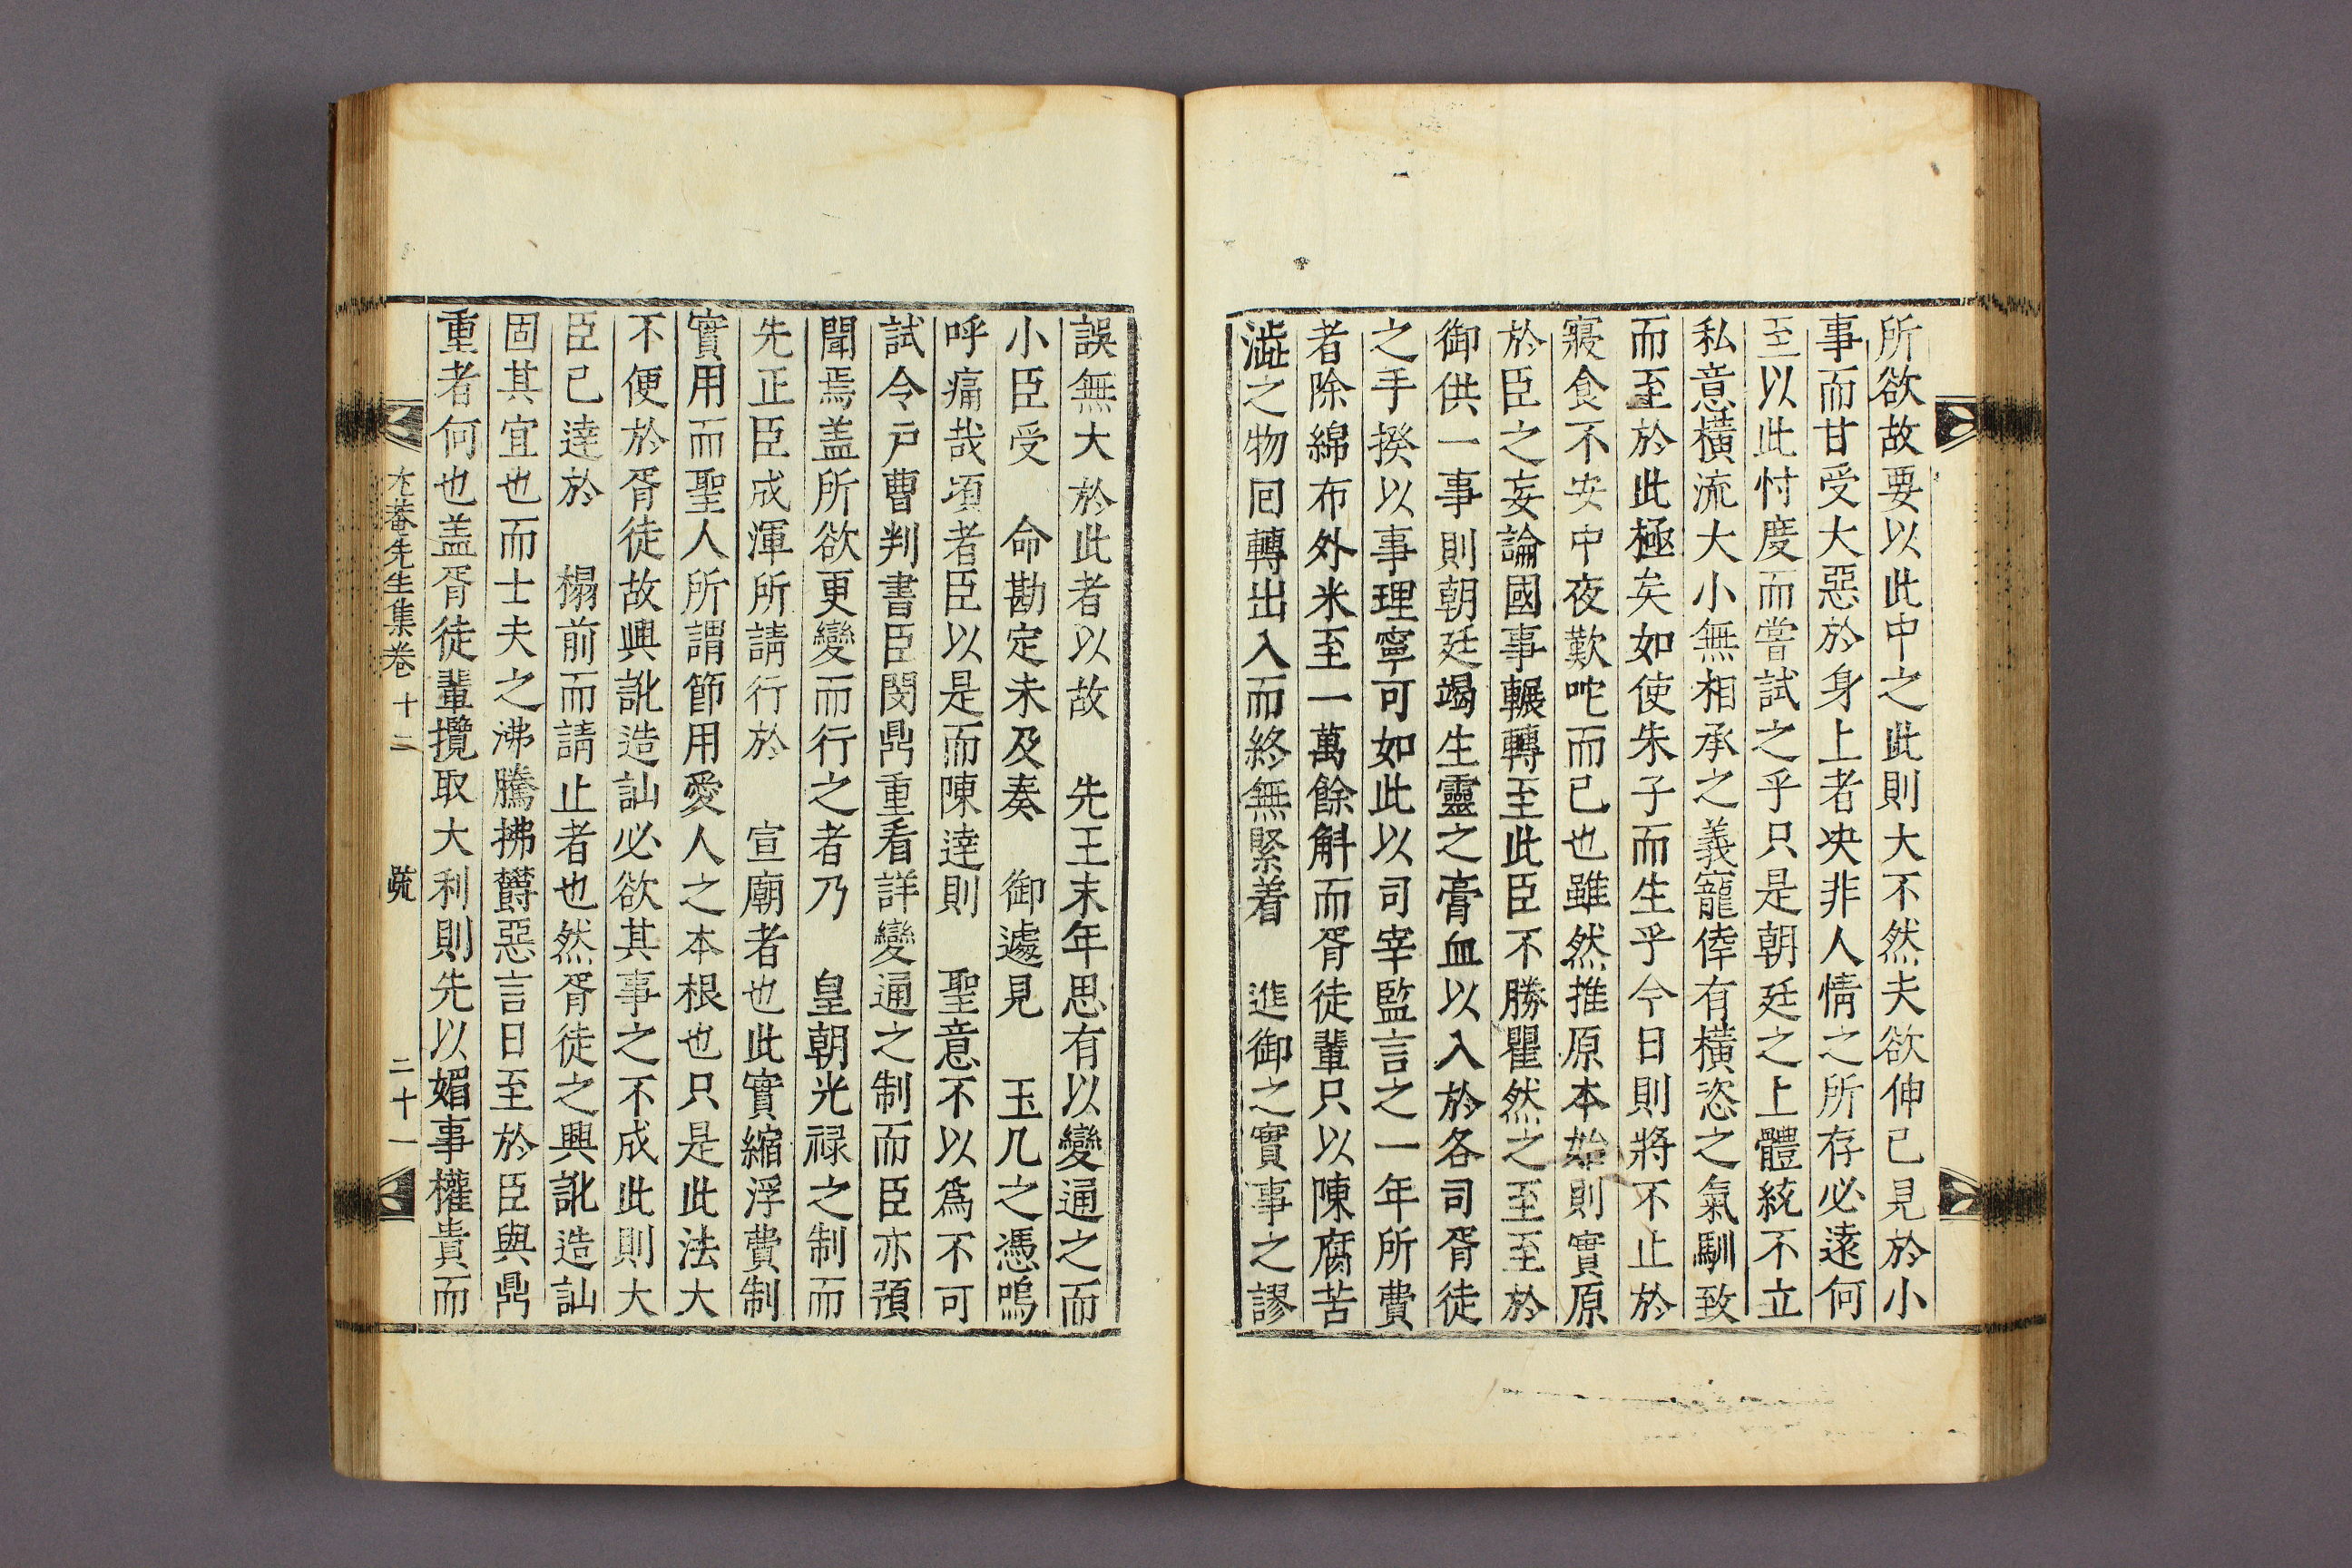 所欲故要以此中之此則大不然夫欲伸已見於小
事而甘受大惡於身上者决非人情之所存必遠何
至以此忖度而嘗試之乎只是朝廷之上體統不立
私意橫流大小無相承之義寵倖有橫恣之氣馴致
而至於此極矣如使朱子而生乎今日則將不止於
寢食不安中夜歎咤而已也雖然推原本始則實原
於臣之妄論國事輾轉至此臣不勝瞿然之至至於
御供一事則朝廷竭生靈之膏血以入於各司胥徒
之手揆以事理寧可如此以司宰監言之一年所費
者除綿布外米至一萬餘斛而胥徒輩只以陳腐苦
澁之物回轉出入而終無緊着 進御之實事之謬
誤無大於此者以故 先王末年思有以變通之而
小臣受 命勘定未及奏 御遽見 玉几之憑嗚
呼痛哉頃者臣以是而陳達則 聖意不以爲不可
試令戶曹判書臣閔鼎重看詳變通之制而臣亦預
聞焉盖所欲更變而行之者乃 皇朝光禄之制而
先正臣成渾所請行於 宣廟者也此實縮浮費制
實用而聖人所謂節用愛人之本根也只是此法大
不便於胥徒故興訛造訕必欲其事之不成此則大
臣已達於 榻前而請止者也然胥徒之興訛造訕
固其宜也而士夫之沸騰拂欝惡言日至於臣與鼎
重者何也盖胥徒輩攬取大利則先以媚事權貴而
尤菴先生集卷十二 疏 二十一